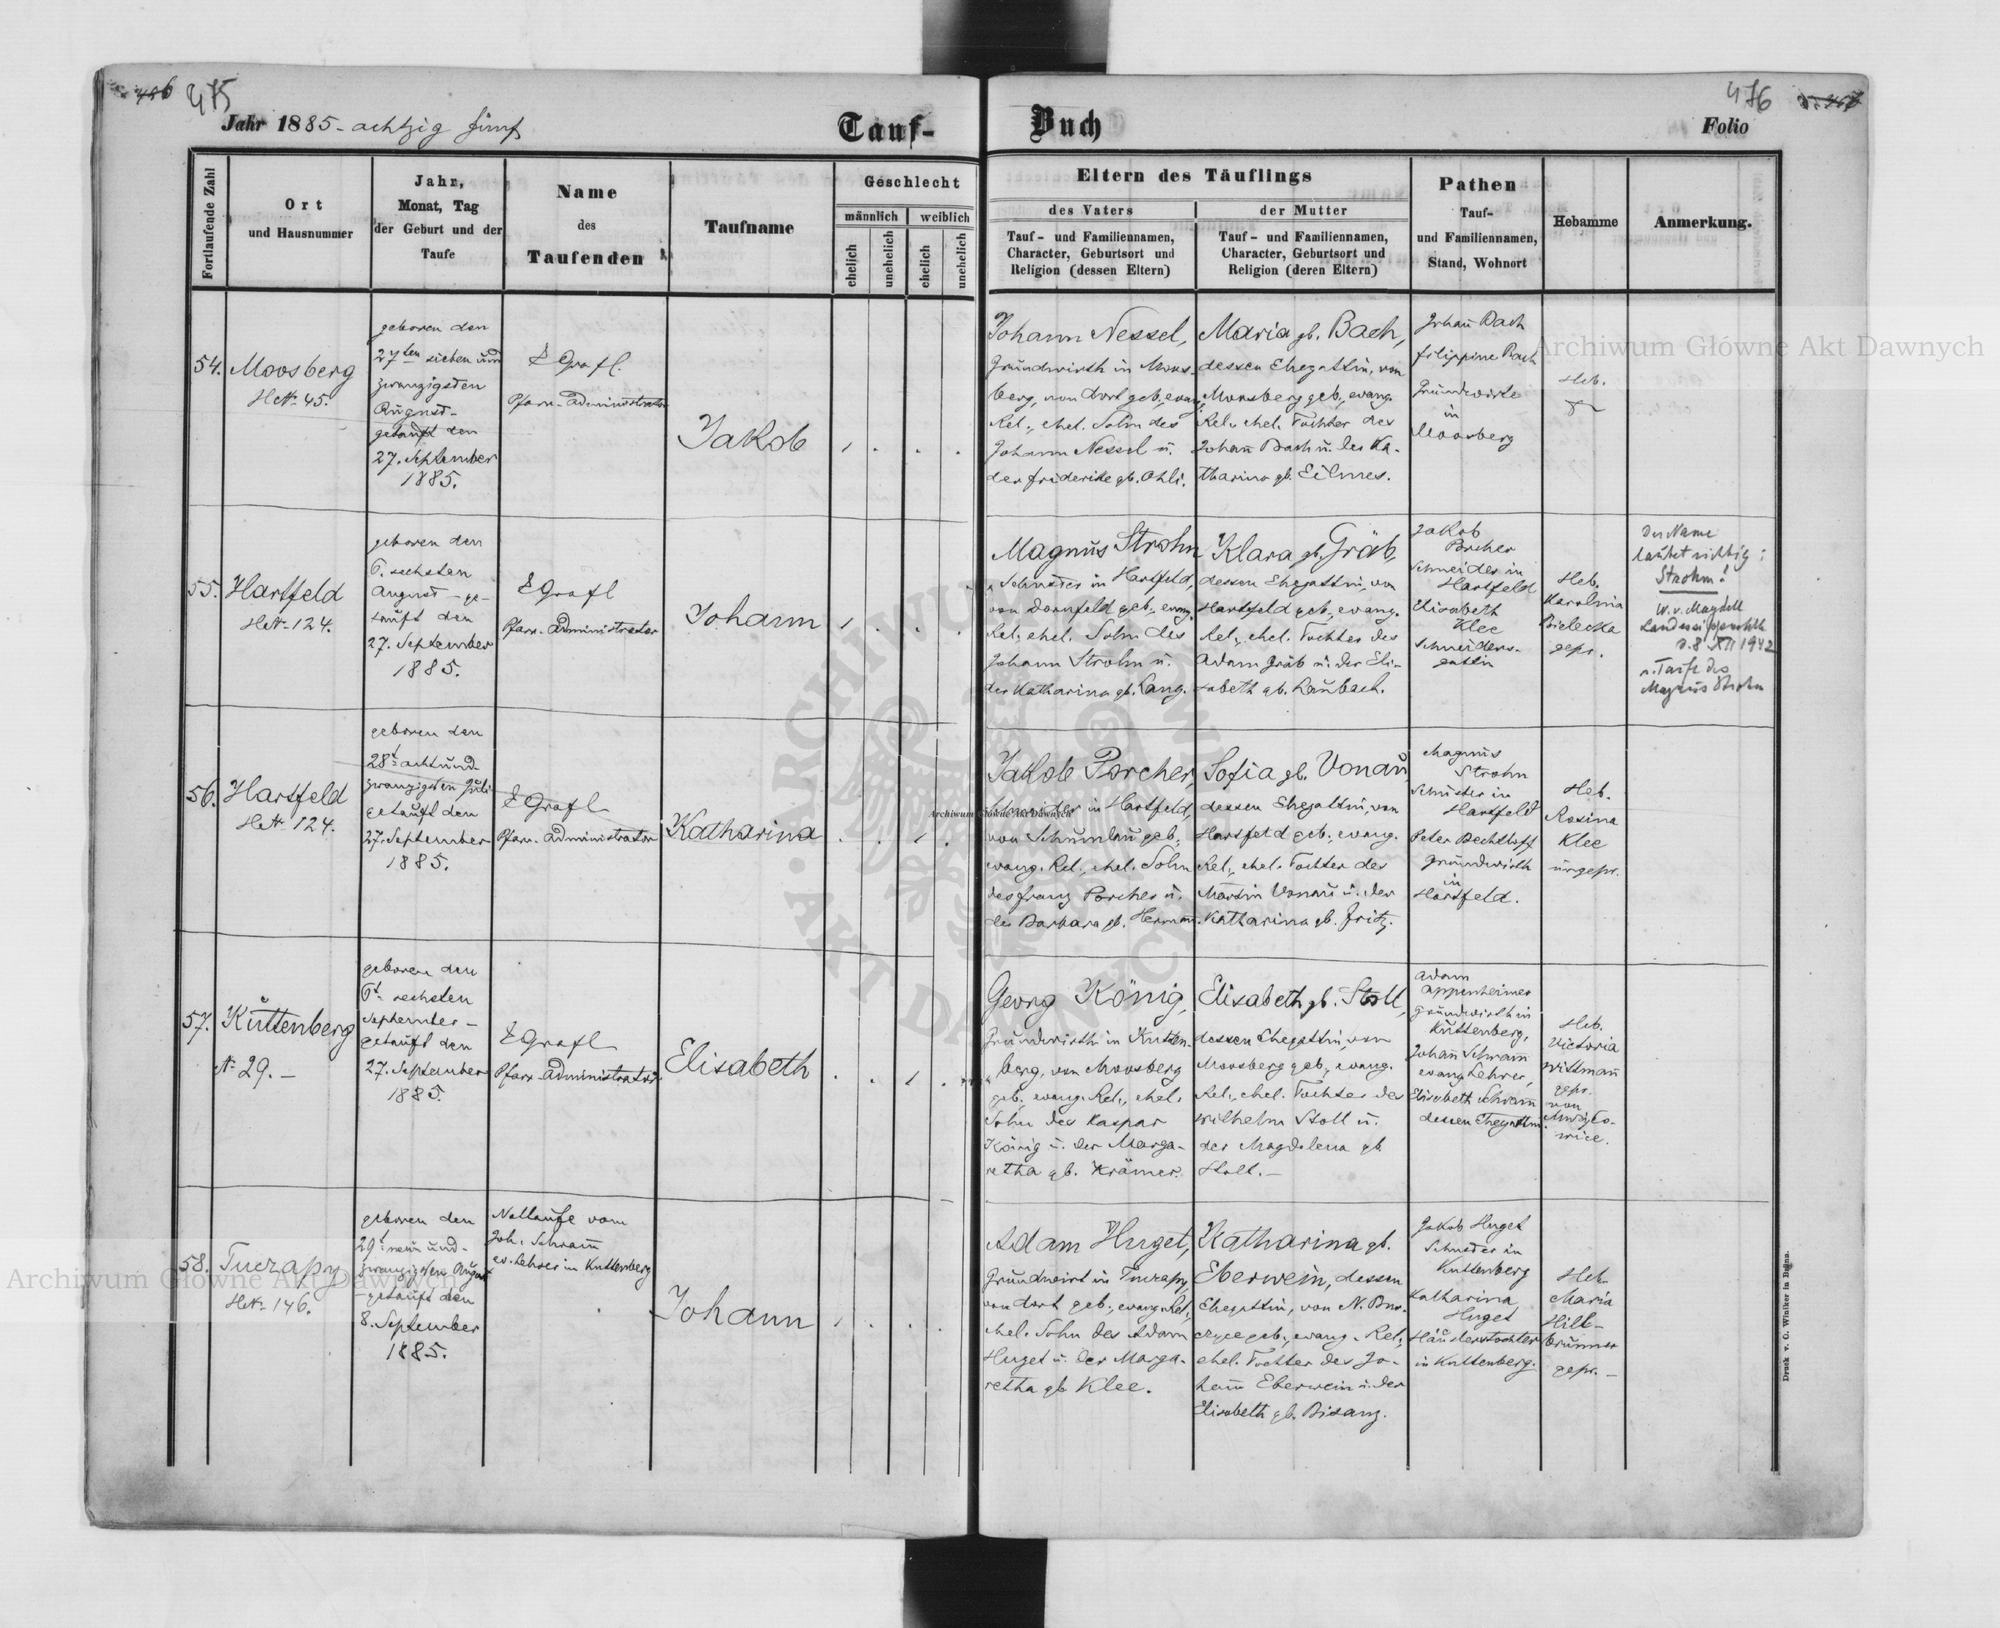 486
475
476
Jahr 1885 - achtzig fünf
Tauf-
Buch
Folio
Fortlaufende Zahl
Ort
und Hausnummer
Jahr,
Monat, Tag
der Geburt und der
Taufe
Name
des
Taufenden
Taufname
Geschlecht
männlich
weiblich
ehelich
unehelich
ehelich
unehelich
Eltern des Täuflings
des Vaters
der Mutter
Tauf- und Familiennamen,
Character, Geburtsort und
Religion (dessen Eltern)
Tauf- und Familiennamen,
Character, Geburtsort und
Religion (deren Eltern)
Pathen
Tauf-
und Familiennamen,
Stand, Wohnort
Hebamme
Anmerkung.
54.
Moosberg
HN: 45.
geboren den
27ten sieben und
zwanzigsten
August -
getauft den
27. September
1885.
E Grafl.
Pfarr-Administrator
Jakob
Johann Nessel,
Grundwirth in Moos-
berg, von dort geb., evang.
Rel., ehel. Sohn des
Johann Nessel u.
der Friderike gb. Ohli.
Maria gb. Bach,
dessen Ehegattin, von
Moosberg geb., evang.
Rel., ehel. Tochter des
Johann Bach u. der Ka-
tharina gb. Eilmes.
Johann Bach
Filippine Bach
Grundwirte
in
Moosberg
Heb.
55.
Hartfeld
HN: 124.
geboren den
6. sechsten
August - ge-
tauft den
27. September
1885.
E Grafl
Pfarr-Administrator
Johann
Magnus Strohn
Schuster in Hartfeld,
von Dornfeld geb., evang.
Rel. ehel. Sohn des
Johann Strohn u.
der Katharina gb. Lang.
Klara gb. Gräb,
dessen Ehegattin, von
Hartfeld geb., evang.
Rel., ehel. Tochter des
Adam Gräb u. der Eli-
sabeth gb. Laubach.
Jakob
Porcher
Schneider in
Hartfeld
Elisabeth
Klee
Schneiders-
gattin
Heb.
Karolina
Bielecka
gepr.
Der Name
lautet richtig:
Strohm!
W. v. Magdell
d. 8. XII 1942
Magnus Strohn
56.
Hartfeld
HN: 124.
geboren den
28t achtund-
zwanzigsten Juli
getauft den
27. September
1885.
E Grafl
Pfarr-Administrator
Katharina
Jakob Porcher,
Schneider in Hartfeld,
von Schumlau geb.,
evang. Rel., ehel. Sohn
des Franz Porcher u.
der Barbara gb. Hermann.
Sofia gb. Vonau
dessen Ehegattin, von
Hartfeld geb., evang.
Rel., ehel. Tochter des
Martin Vonau u. der
Katharina gb. Fritz.
Magnus
Strohn
Schuster in
Hartfeld
Peter Bechtloff
Grundwirth
in
Hartfeld.
Heb.
Rosina
Klee
ungepr.
57.
Kuttenberg
N: 29. -
geboren den
6t sechsten
September -
getauft den
27. September
1885.
E Grafl
Pfarr-Administrator
Elisabeth
Georg König,
Grundwirth in Kutten-
berg, von Moosberg
geb., evang. Rel., ehel.
Sohn des Kaspar
König u. der Marga-
retha gb. Krämer.
Elisabeth gb. Stoll,
dessen Ehegattin, von
Moosberg geb., evang.
Rel., ehel. Tochter des
Wilhelm Stoll u.
der Magdalena gb.
Stoll. -
Adam
Appenheimer
Grundwirth in
Kuttenberg,
Johann Schramm
evang Lehrer,
Elisabeth Schramm
dessen Ehegattin.
Heb.
Victoria
Wittmann
gepr.
von
wice.
58.
Tuczapy
HN: 146.
geboren den
29t neun und-
zwanzigsten August
- getauft den
8. September
1885.
Nottaufe vom
Joh. Schramm
ev. Lehrer in Kuttenberg
Johann
Adam Huget,
Grundwirt in Tuczapy,
von dort geb., evang. Rel.,
ehel. Sohn des Adam
Huget u. der Marga-
retha gb Klee.
Katharina gb.
Eberwein, dessen
Ehegattin, von N. Brus-
geb., evang. Rel.,
ehel. Tochter des Jo-
hann Eberwein u. der
Elisabeth gb. Bisanz.
Jakob Huget
Schuster in
Kuttenberg
Katharina
Huget
Häuslerstochter
in Kuttenberg.
Heb.
Maria
Hilt-
brunner
gepr. -
Druck v. O. Winiker in Brünn.
Archiwum Główne Akt Dawnych
Archiwum Główne Akt Dawnych
Archiwum Główne Akt Dawnych